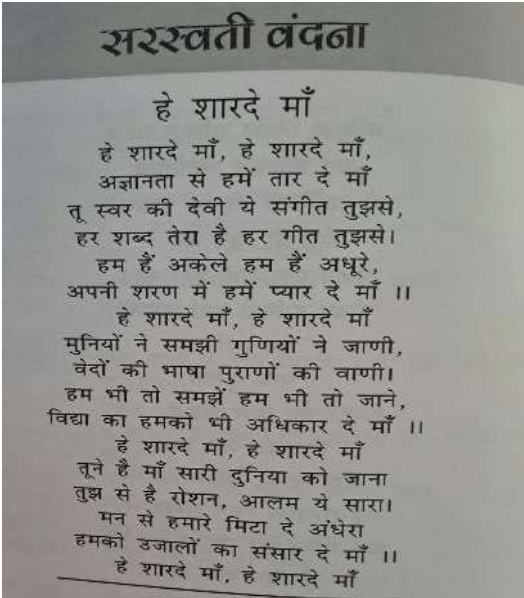 सरस्वती वंदना
हे शारदे माँ
हे शारदे माँ, हे शारदे माँ,
अज्ञानता से हमें तार दे माँ
तू स्वर की देवी ये संगीत तुझसे,
हर शब्द तेरा है हर गीत तुझसे।
हम हैं अकेले हम हैं अधूरे,
अपनी शरण में हमें प्यार दे माँ ।।
हे शारदे माँ, हे शारदे माँ
मुनियों ने समझी गुणियों ने जाणी,
वेदों की भाषा पुराणों की वाणी।
हम भी तो समझें हम भी तो जाने,
विद्या का हमको भी अधिकार दे माँ ।।
हे शारदे माँ, हे शारदे माँ
तूने है माँ सारी दुनिया को जाना
तुझ से है रोशन, आलम ये सारा।
मन से हमारे मिटा दे अंधेरा
हमको उजालों का संसार दे माँ ।।
हे शारदे माँ, हे शारदे माँ